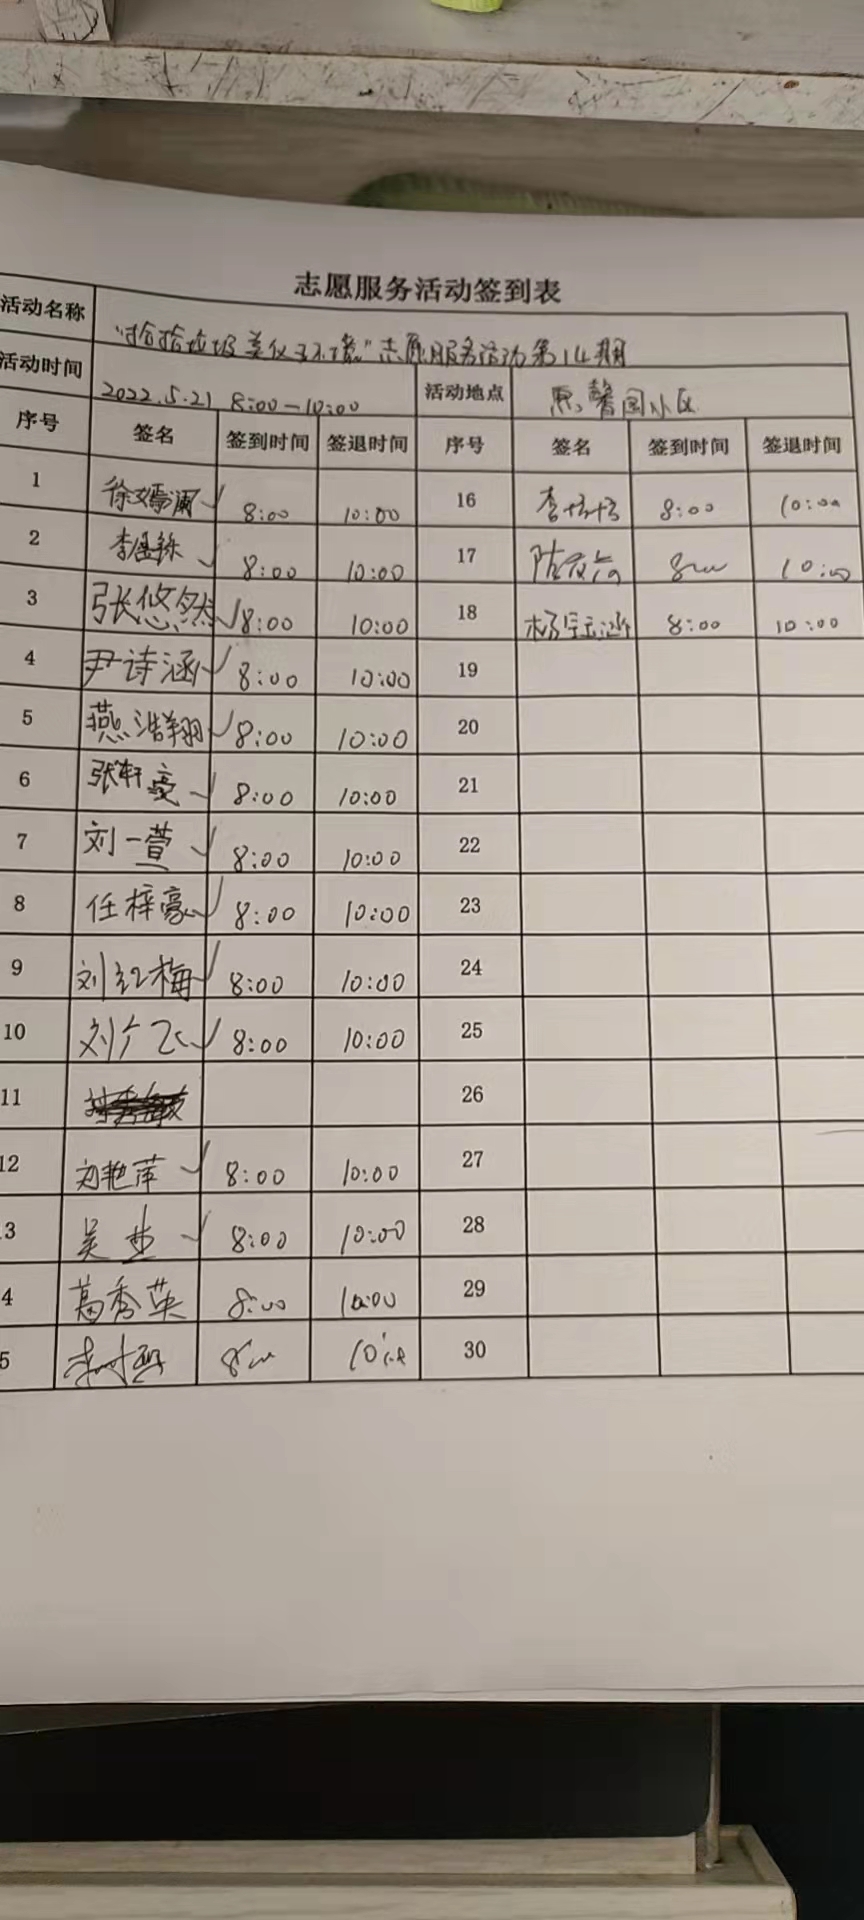 志愿服务活动签到表
活动名称 "捡拾垃圾 美化环境"志愿服务活动第14期
活动时间 2022.5.21 8:00-10:00 活动地点 惠馨园小区
序号 签名 签到时间 签退时间 序号 签名 签到时间 签退时间
1 徐嫣澜 8:00 10:00 16 8:00 10:00
2 8:00 10:00 17 8:00 10:00
3 张悠然 8:00 10:00 18 8:00 10:00
4 尹诗涵 8:00 10:00 19
5 燕浩翔 8:00 10:00 20
6 张轩豪 8:00 10:00 21
7 刘一萱 8:00 10:00 22
8 任梓豪 8:00 10:00 23
9 刘红梅 8:00 10:00 24
10 刘广飞 8:00 10:00 25
11 26
12 刘艳萍 8:00 10:00 27
3 吴 8:00 10:00 28
4 葛秀英 8:00 10:00 29
5 8:00 10:00 30